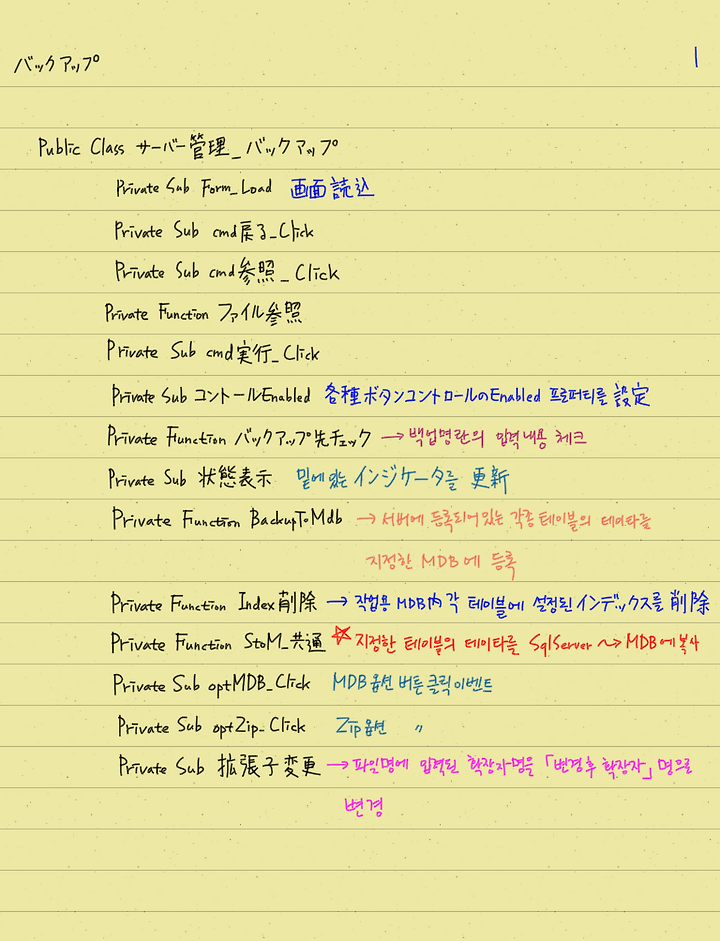 バックアップ 1
Public Class サーバー管理_バックアップ
Private Sub Form_Load 画面読込
Private Sub cmd戻る_Click
Private Sub cmd参照_Click
Private Function ファイル参照
Private Sub cmd実行_Click
Private Sub コントールEnabled 各種ボタンコントロールのEnabled 프로퍼티를 設定
Private Function バックアップ先チェック → 백업명란의 입력내용 체크
Private Sub 状態表示 밑에있는 インジケータを 更新
Private Function BackupToMdb → 서버에 등록되어있는 각종테이블의 테이타를
지정한 MDB에 등록
Private Function Index削除 → 작업용 MDB内 각 테이블에 설정된 インデックスを 削除
Private Function StoM_共通 ☆ 지정한 테이블의 테이타를 SqlServer ~> MDB에 복사
Private Sub optMDB_Click MDB옵션 버튼클릭이벤트
Private Sub optZip_Click Zip옵션 〃
Private Sub 拡張子変更 → 파일명에 입력된 확장자명을 「변경후 확장자」명으로
변경